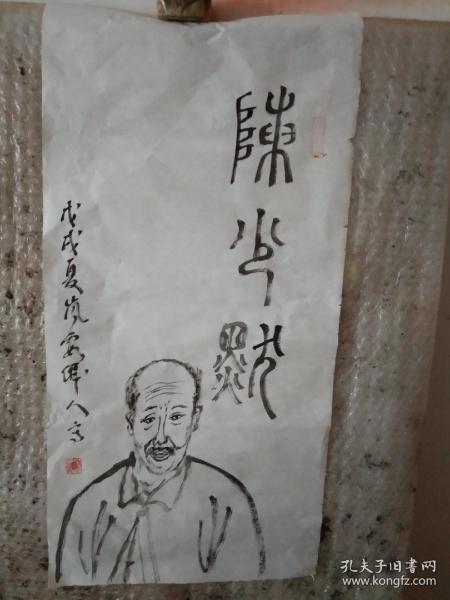 陳少默
戊戌夏岚人写
孔夫子旧书网
www.kongfz.com